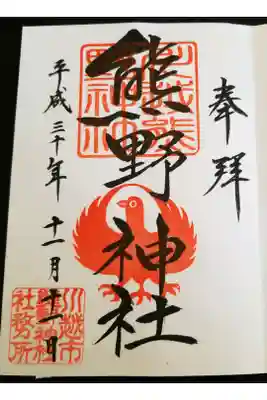 奉拝
川越熊野神社
熊野神社
平成三十年 十一月 十一日
川越市
熊野神社
社務所